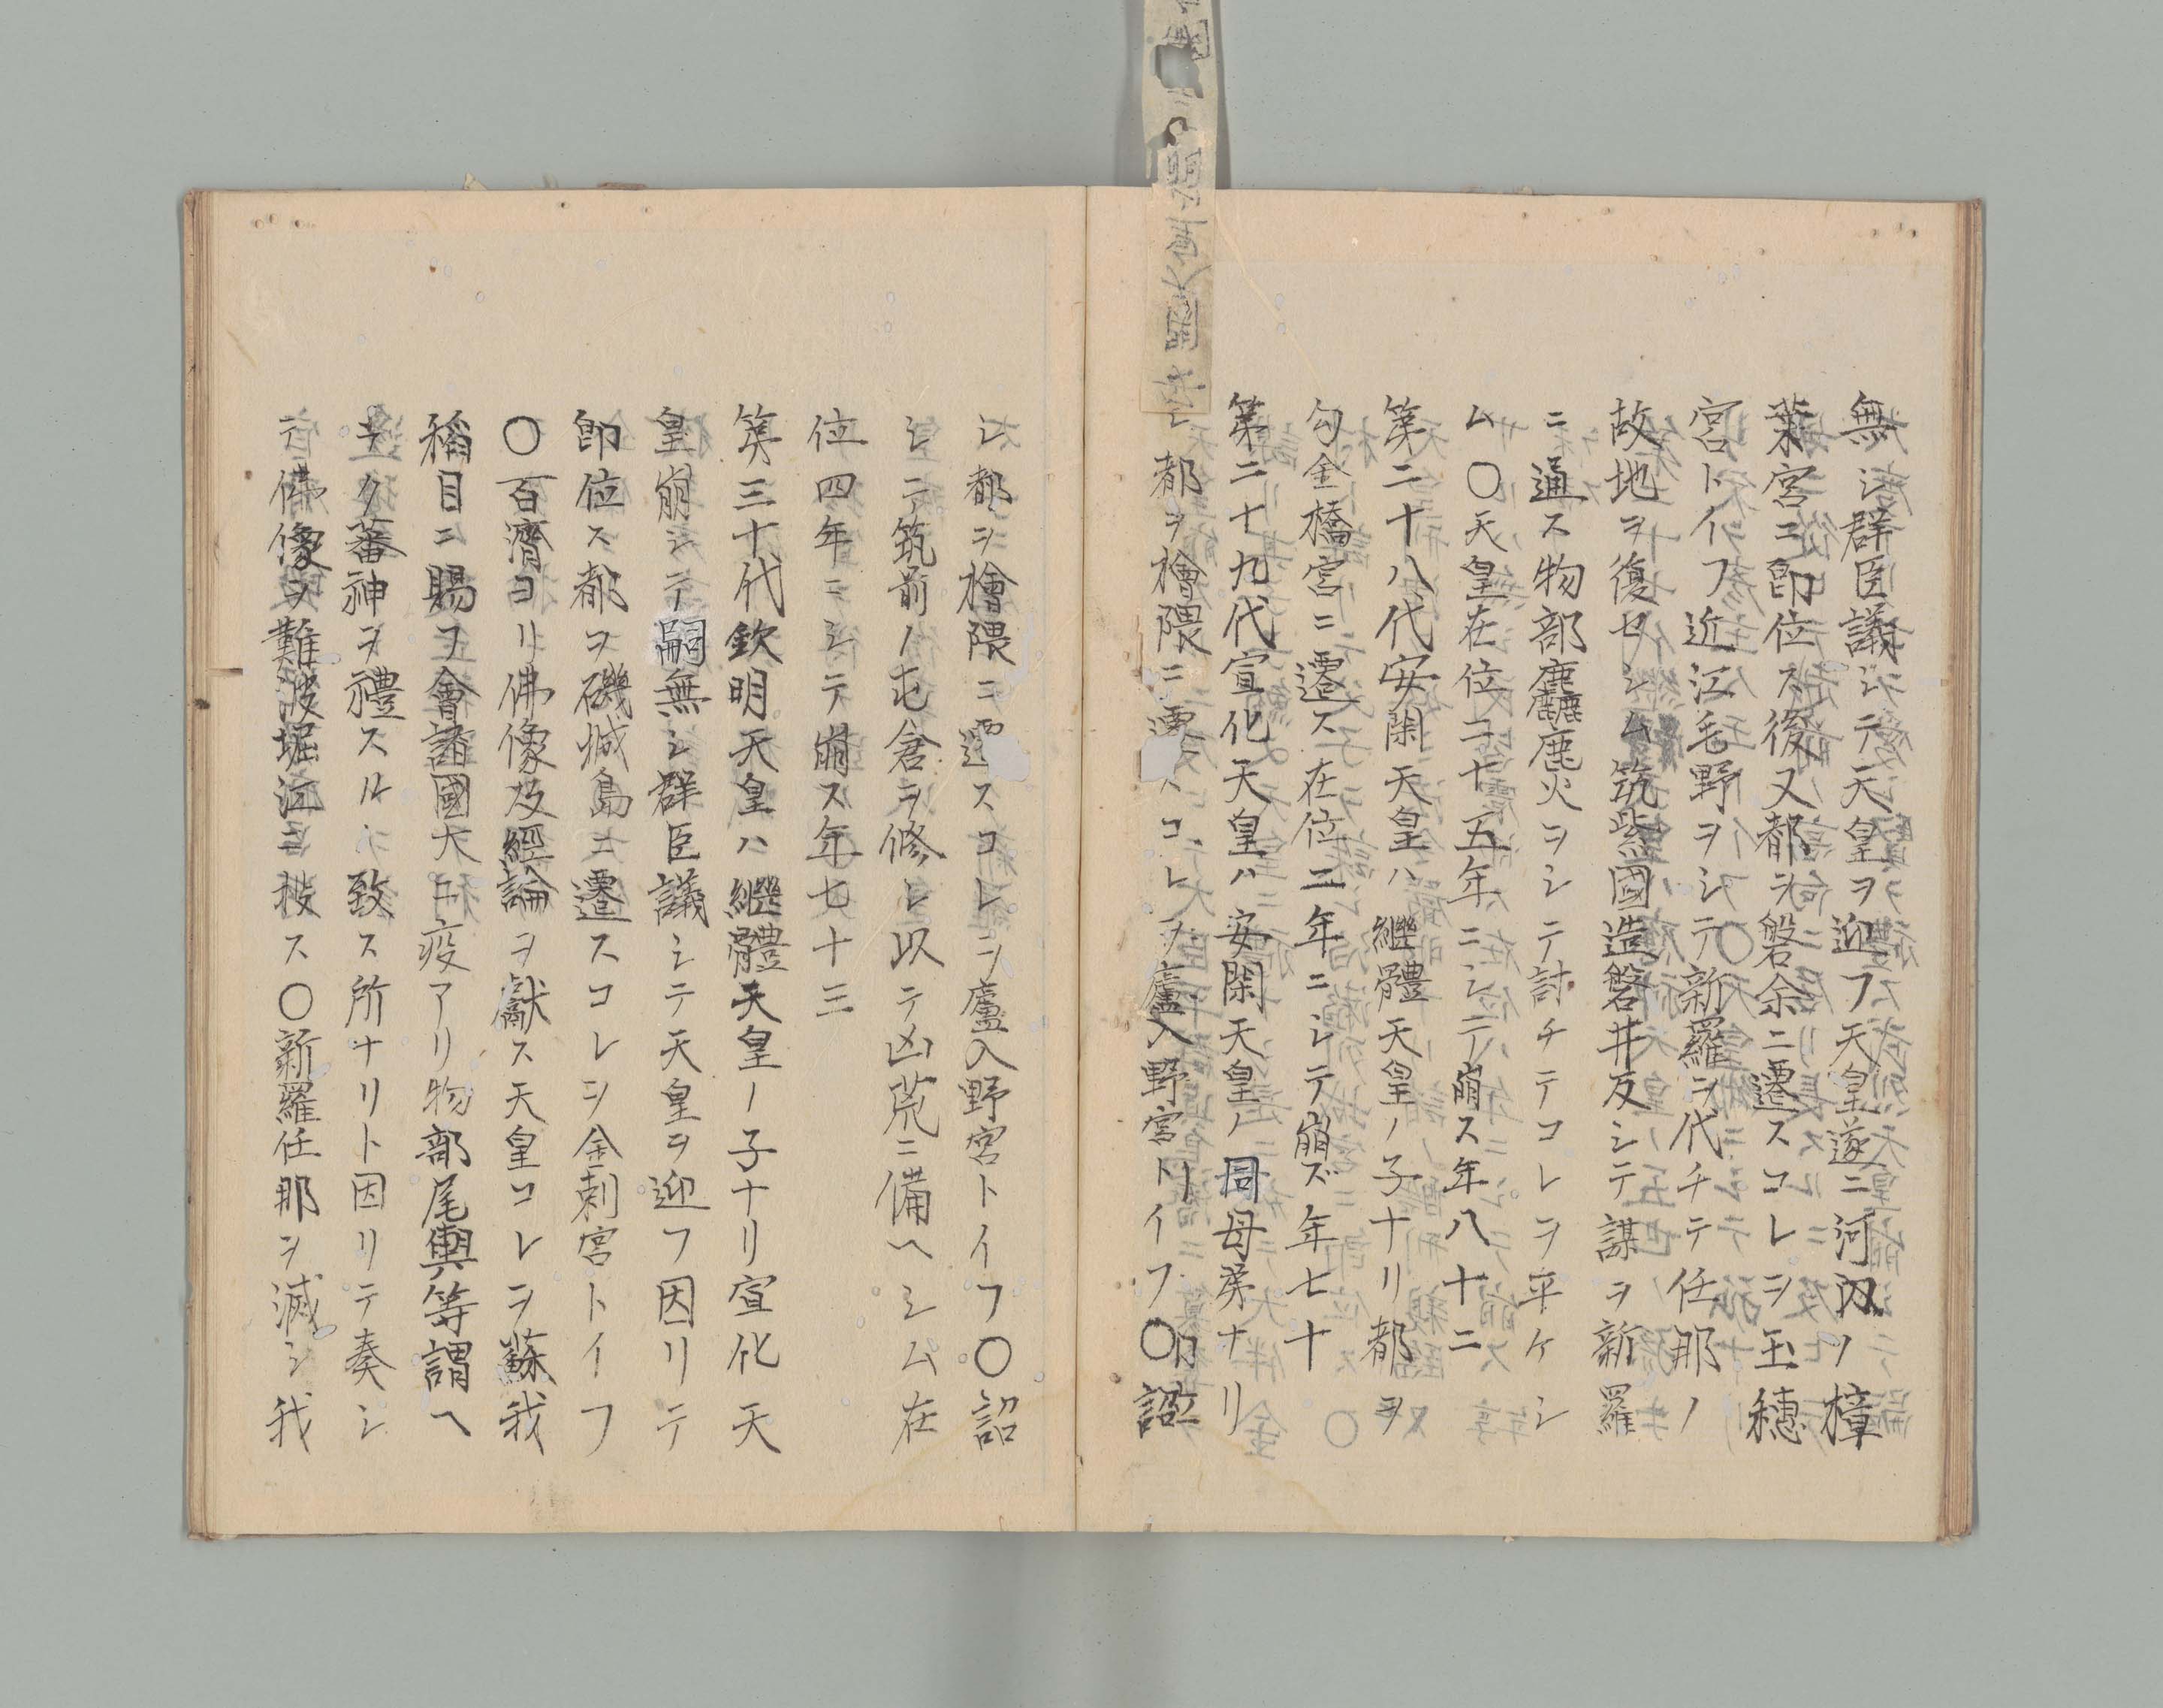 無シ群臣議シテ天皇ヲ迎フ天皇遂ニ河內ノ樟
葉宮ニ即位ス後又都ヲ磐余ニ遷スコレヲ玉穗
宮トイフ近江毛野ヲシテ新羅ヲ代チテ任那ノ
故地ヲ復セシム筑紫國造磐井反シテ謀ヲ新羅
ニ通ス物部麤鹿火ヲシテ討チテコレヲ平ケシ
ム〇天皇在位二十五年ニシテ崩ス年八十二
第二十八代安閑天皇ハ繼體天皇ノ子ナリ都ヲ
勾金橋宮ニ遷ス在位二年ニシテ崩ズ年七十
第二十九代宣化天皇ハ安閑天皇ノ同母弟ナリ
都ヲ檜隈ニ遷スコレヲ廬入野宮トイフ〇詔
シ都ヲ檜隈ニ遷スコレヲ廬入野宮トイフ〇詔
シテ筑前ノ屯倉ヲ修レ以テ凶荒ニ備ヘシム在
位四年ニシテ崩ス年七十三
第三十代欽明天皇ハ繼體天皇ノ子ナリ宣化天
皇崩シテ嗣無シ群臣議シテ天皇ヲ迎フ因リテ
即位ス都ヲ磯城島ニ遷スコレヲ金刺宮トイフ
〇百濟ヨリ佛像及經論ヲ獻ス天皇コレヲ蘇我
稻目ニ賜フ會諸國大ニ疫アリ物部尾輿等謂ヘ
ラク蕃神ヲ禮スルノ致ス所ナリト因リテ奏シ
テ佛像ヲ難波堀江ニ投ス〇新羅任那ヲ滅シ我